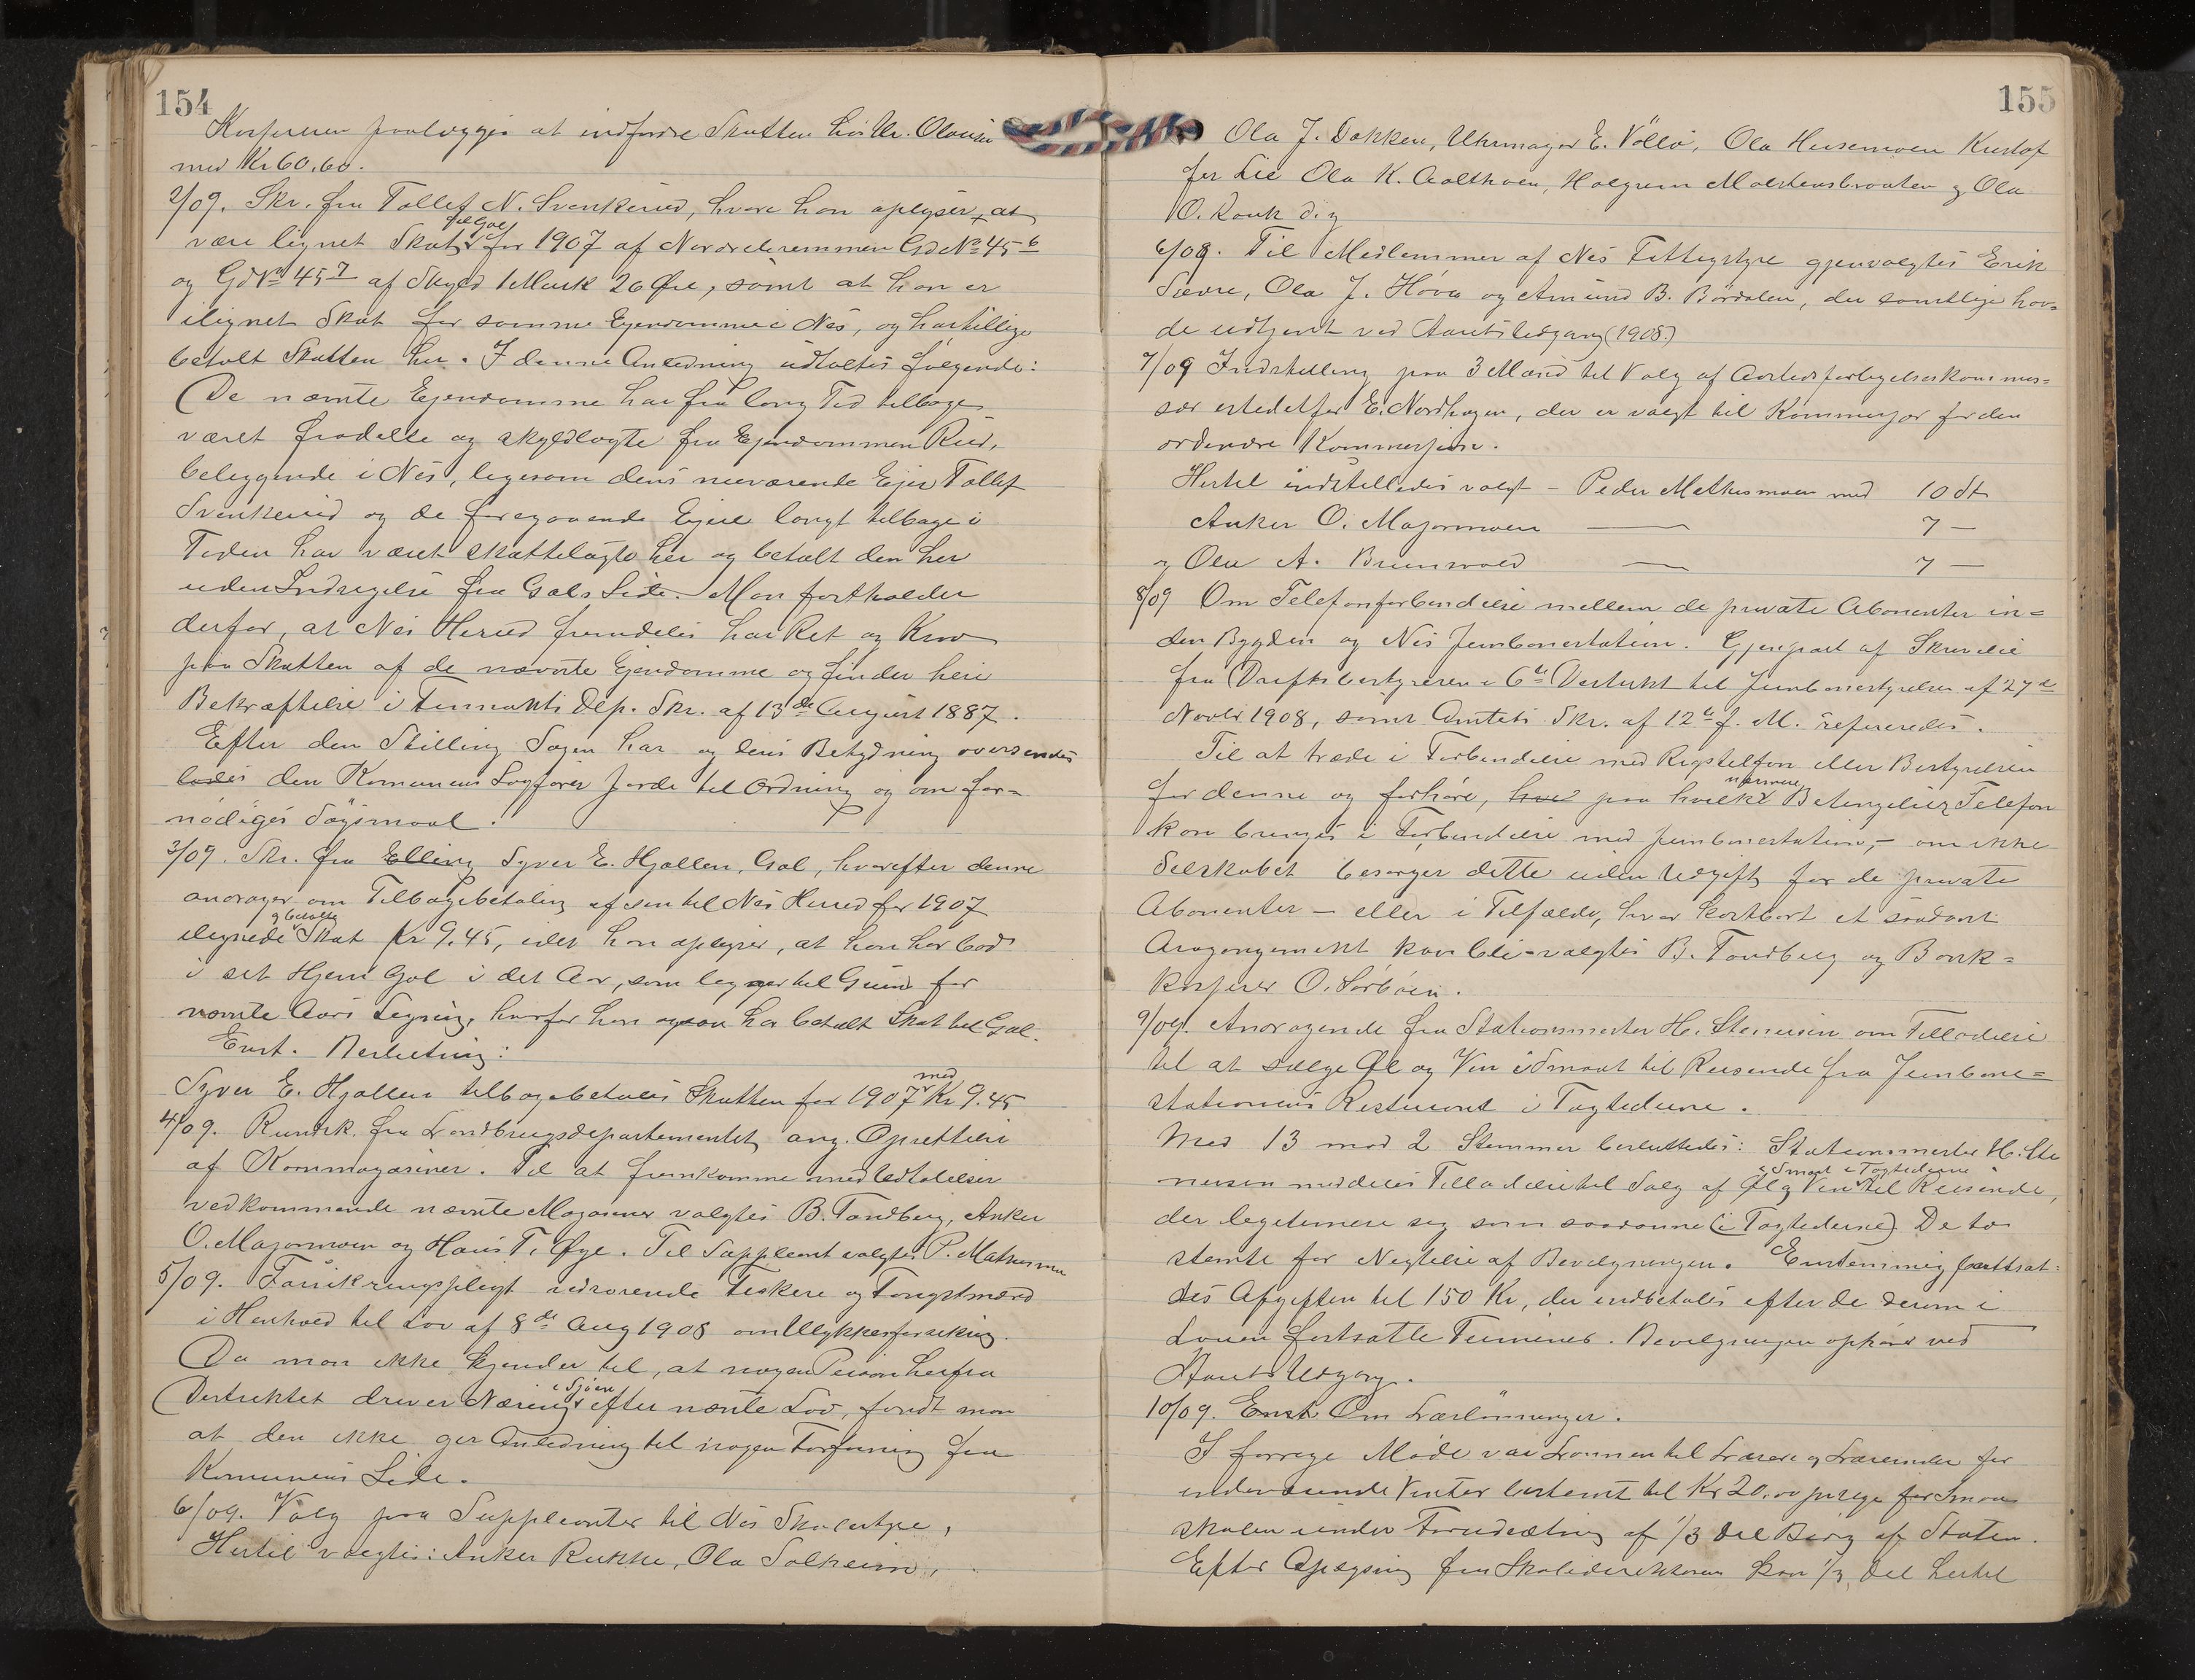 154
Kasseren paalægges at indfordre Skatten hos Hr. Olausen
med Kr 60.60.
2/09. Skr. fra Tollef N. Svenkerud, hvori han oplyser, at
være lignet Skat til Gol for 1907 af Nordre Bremmen Gd No 45 6
og Gd No 45 7 af Skyld 1 Mark 26 Øre, samt at han er
ilignet Skat for samme Eiendomme i Nes, og har tillige
betalt Skatten her. I denne Anledning udtaltes følgende:
De nævnte Ejendomme har fra lang Tid tilbage
været fradelte og skyldlagte fra Ejendommen Rud,
beliggende i Nes, ligesom dens nuværende Ejer Tollef
Svenkerud og de foregaaende Ejere langt tilbage i
Tiden har været skattelagte her og betalt den her
uden Indsigelse fra Gols Side. Man fastholder
derfor, at Nes Herred fremdeles har Ret og Krav
paa Skatten af de nævnte Ejendomme og finder heri
Bekræftelse i Finants Dep. Skr. af 13de August 1887.
Efter den Stilling Sagen har og dens Betydning oversendes
den Komunens Sagfører Jorde til Ordning og om for=
nødiges Søgsmaal.
3/09. Skr. fra Elling Syver E. Hjallen, Gol, hvorefter denne
andrager om Tilbagebetaling af sin til Nes Herred for 1907
ilignede og betalte Skat Kr 9.45, idet han oplyser, at han har bod
i sit Hjem Gol i det Aar, som ligger til Grund for
nævnte Aars Ligning, hvorfor han ogsaa har betalt Skat til Gol.
Enst. Beslutning:
Syver E. Hjallen tilbagebetales Skatten for 1907 med Kr 9.45
4/09. Rundsk. fra Landbrugsdepartementet ang. Oprettelse
af Kornmagasiner. Til at fremkomme med Udtalelser
vedkommende nævnte Magasiner valgtes B. Tandberg, Anker
O. Majormoen og Hans T. Øye. Til Suppleant valgtes P. Mathismoen
5/09. Forsikringspligt vedrørende Fiskere og Fangstmænd
i Henhold til Lov af 8de Aug 1908 om Ulykkesforsikring.
Da man ikke kjender til, at nogen Person herfra
Distriktet driver Næring i Sjøen efter nævnte Lov, fandt man
at den ikke gir Anledning til nogen Forføining fra
Komunens Side.
6/09. Valg paa Suppleanter til Nes Skolestyre,
Hertil valgtes: Anker Rukke, Ola Solheim,
155
Ola J. Dokken, Uhrmager E. Vøllo, Ola Husemoen Kristof
fer Lie Ola K. Aalthoen, Halgrim Mortensbraaten og Ola
O. Rauk d. y
6/09. Til Medlemmer af Nes Fattigstyre gjenvalgtes Erik
Sævre, Ola J. Hova og Amund B. Børdalen, der samtlige hav=
de udtjent ved Aarets Udgang (1908)
7/09 Indstilling paa 3 Mænd til Valg af Aastedsforligelseskommis=
sær istedetfor E. Nordhagen, der er valgt til Kommissær for den
ordinære Kommission.
Hertil indstilledes valgt – Peder Mathismoen med 10 St
Anker O. Majormoen — 7 —
og Ola A. Brunvold — 7 —
8/09 Om Telefonforbindelse mellem de private Abonenter in=
den Bygden og Nes Jernbanestation. Gjenpart af Skrivelse
fra Driftsbestyreren i 6te Distrikt til Jernbanestyrelsen af 27de
Novbr 1908, samt Amtets Skr. af 12te f. M. refereredes.
Til at træde i Forbindelse med Rigstelefon eller Bestyrelsen
for denne og forhøre, paa hvilke nærmere Betingelser Telefon
kan bringes i Forbindelse med Jernbanestation, – om ikke
Selskabet besørger dette uden Udgift for de private
Abonenter – eller i Tilfælde, hvor kostbart et saadant
Arrangement kan bli – valgtes B. Tandberg og Bank=
kasserer O. Sørbøen.
9/09. Andragende fra Stationsmester H. Stenersen om Tilladelse
til at sælge Øl og Vin i Smaat til Reisende fra Jernbane=
stationens Restaurant i Togtiderne.
Med 13 mod 2 Stemmer besluttedes: Stationsmester H. Ste
nersen meddeles Tilladelse til Salg af Øl og Vin i Smaat i Togtiderne til Reisende,
der legitimere sig som saadanne (i Togtiderne). De to
stemte for Negtelse af Bevilgningen. Enstemmig fastsat=
tes Afgiften til 150 Kr, der indbetales efter de derom i
Loven fastsatte Terminer. Bevilgningen ophører ved
Aarets Udgang.
10/09. Enst Om Lærlønninger.
I forrige Møde var Lønnen til Lærere og Lærerinder for
indeværende Vinter bestemt til Kr 20.00 pr uge for Smaa
skolen under Forudsætning af 1/3 Del Bidrag af Staten.
Efter Oplysning fra Skoledirektøren kan 1/3 Del hertil